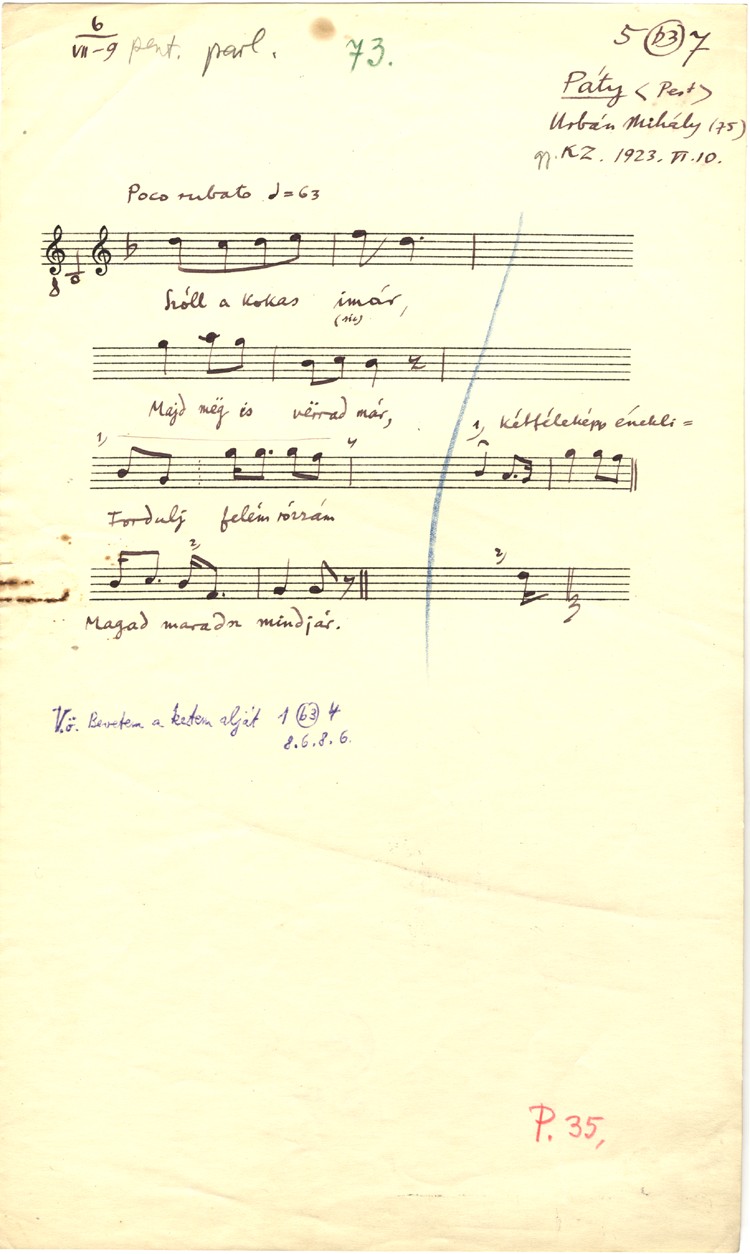 6
VII-9 pent. parl. 73. 5 (b3) 7
Páty <Pest>
Urbán Mihály (75)
gy. KZ. 1923. VI. 10.
Poco rubato ♩=63
8
Szóll a kokas imár,
(sic)
Majd még is vërrad már,
1) kétféleképp énekli=
1)
Fordulj felém rózsám
2) 2)
Magad maradsz mindjár.
V.ö. Bevetem a kertem alját 1 (b3) 4
8.6.8.6.
P. 35,